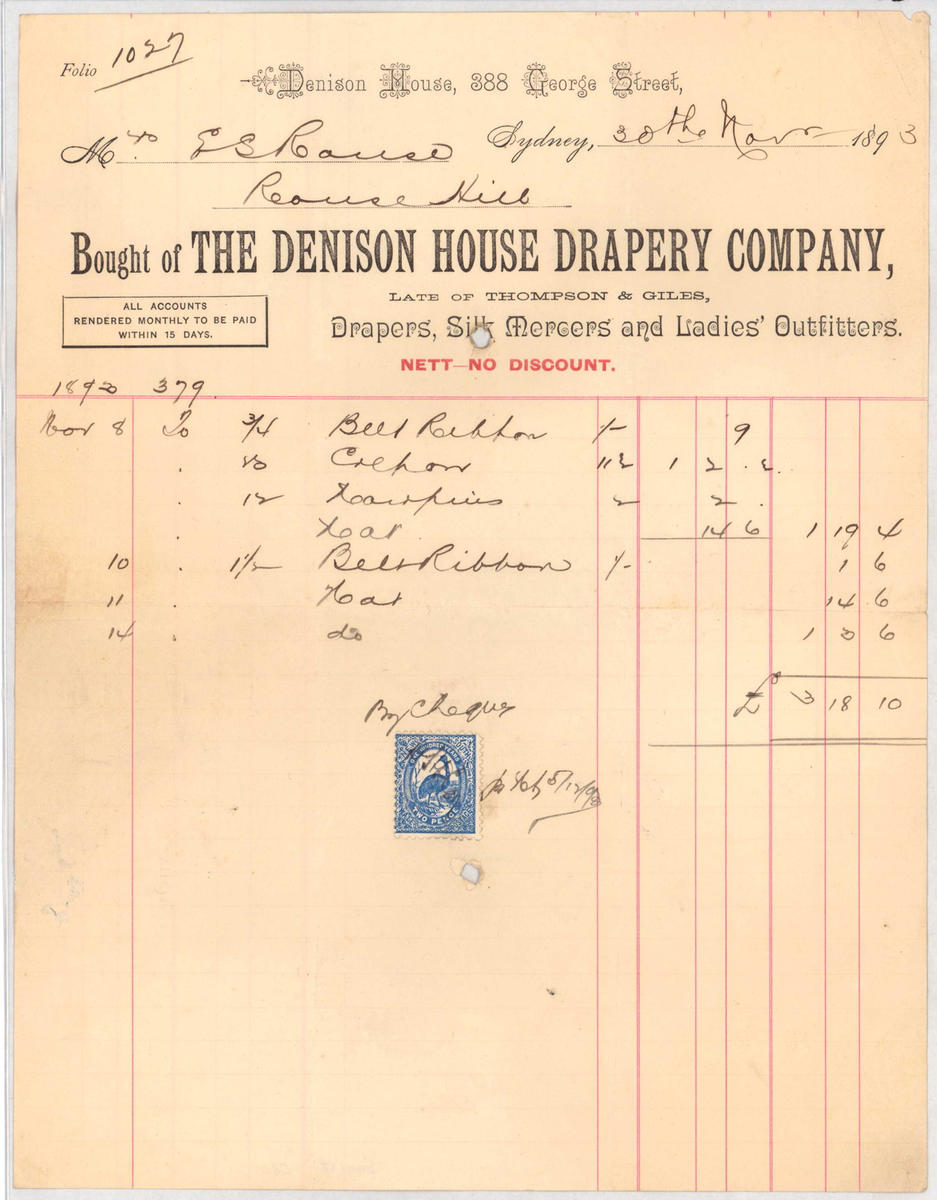 Folio 1027
Denison House, 388 George Street,
Sydney, 30th Novr 1893
Mrs. E S Rouse
Rouse Hill
Bought of THE DENISON HOUSE DRAPERY COMPANY,
LATE OF THOMPSON & GILES,
ALL ACCOUNTS
RENDERED MONTHLY TO BE PAID
WITHIN 15 DAYS.
Drapers, Silk Mercers and Ladies' Outfitters.
NETT—NO DISCOUNT.
1893 379.
Nov 8 To 3/4 Belt Ribbon 1/- 9
. Crepon 11½ 1 2 .
. 12 Hairpins 2 2 .
. Hat 14 6 1 19 4
10 . 1½ Belt Ribbon 1/- 1 6
11 . Hat 14 6
14 . do 1 3 6
£ 3 18 10
By Cheque
ONE HUNDRED YEARS
TWO PENCE
5/12/93